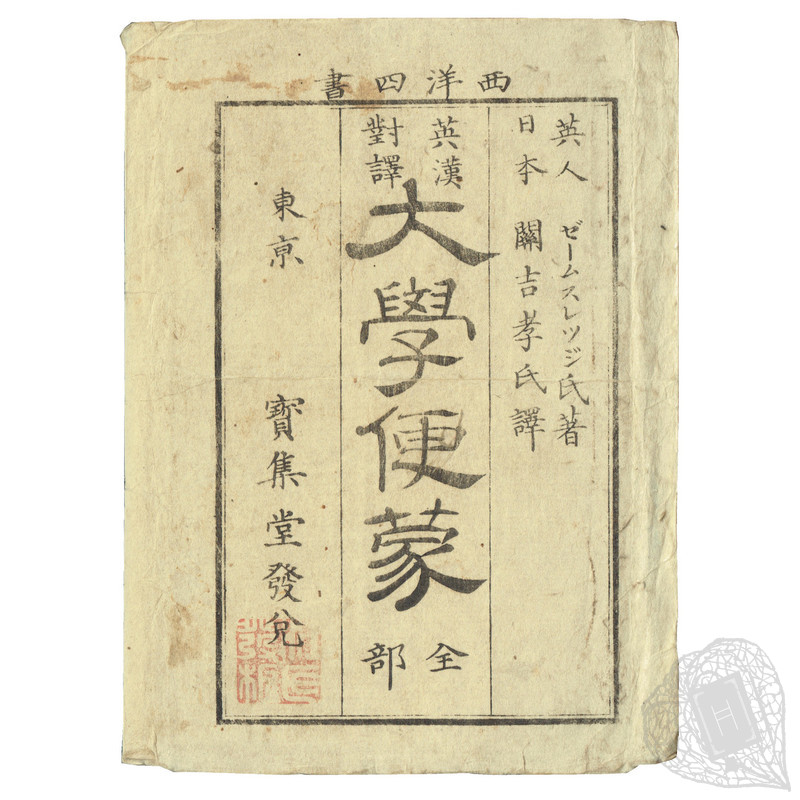 西洋四書
英人 ゼームスレツジ氏著
日本 關吉孝氏譯
英漢
對譯
大學便蒙
全
部
東京 寳集堂發兌
H